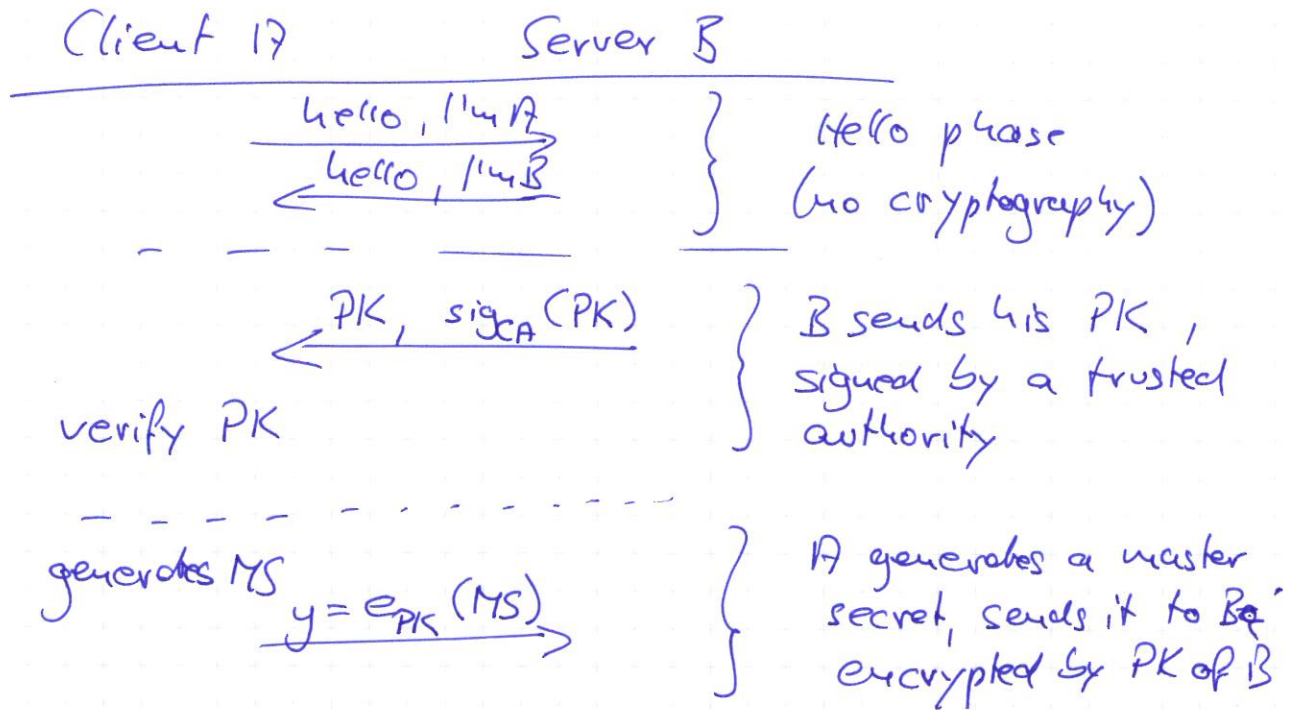 Client A Server B
hello, I'm A
hello, I'm B
Hello phase
(no cryptography)
PK, sig_CA(PK)
verify PK
B sends his PK,
signed by a trusted
authority
generates MS
y = e_PK(MS)
A generates a master
secret, sends it to B
encrypted by PK of B